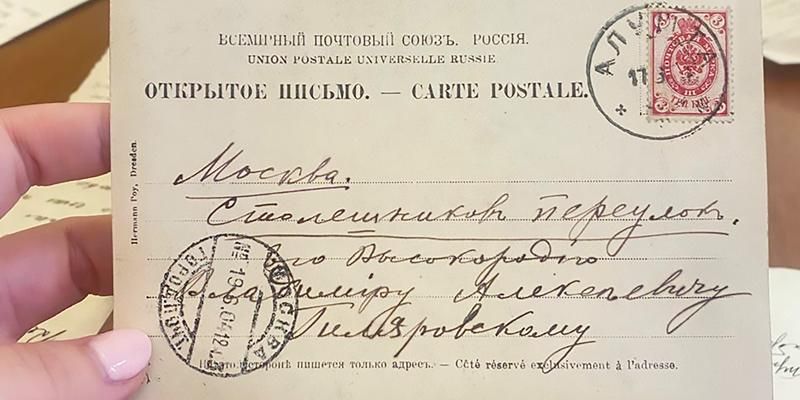 ВСЕМІРНЫЙ ПОЧТОВЫЙ СОЮЗЪ. РОССІЯ.
UNION POSTALE UNIVERSELLE RUSSIE.
ОТКРЫТОЕ ПИСЬМО. — CARTE POSTALE.
АЛУШТА
17
3 3
Hermann Poy, Dresden.
Москва.
Столешниковъ переулокъ.
Его Высокородію
Владиміру Алексѣевичу
Гиляровскому
МОСКВА
На этой сторонѣ пишется только адресъ. — Côté réservé exclusivement à l'adresse.